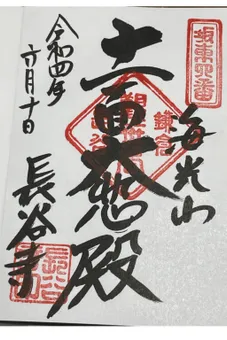 坂東四番
海光山
鎌倉
十一面大悲殿
令和四年
六月十日
長谷寺